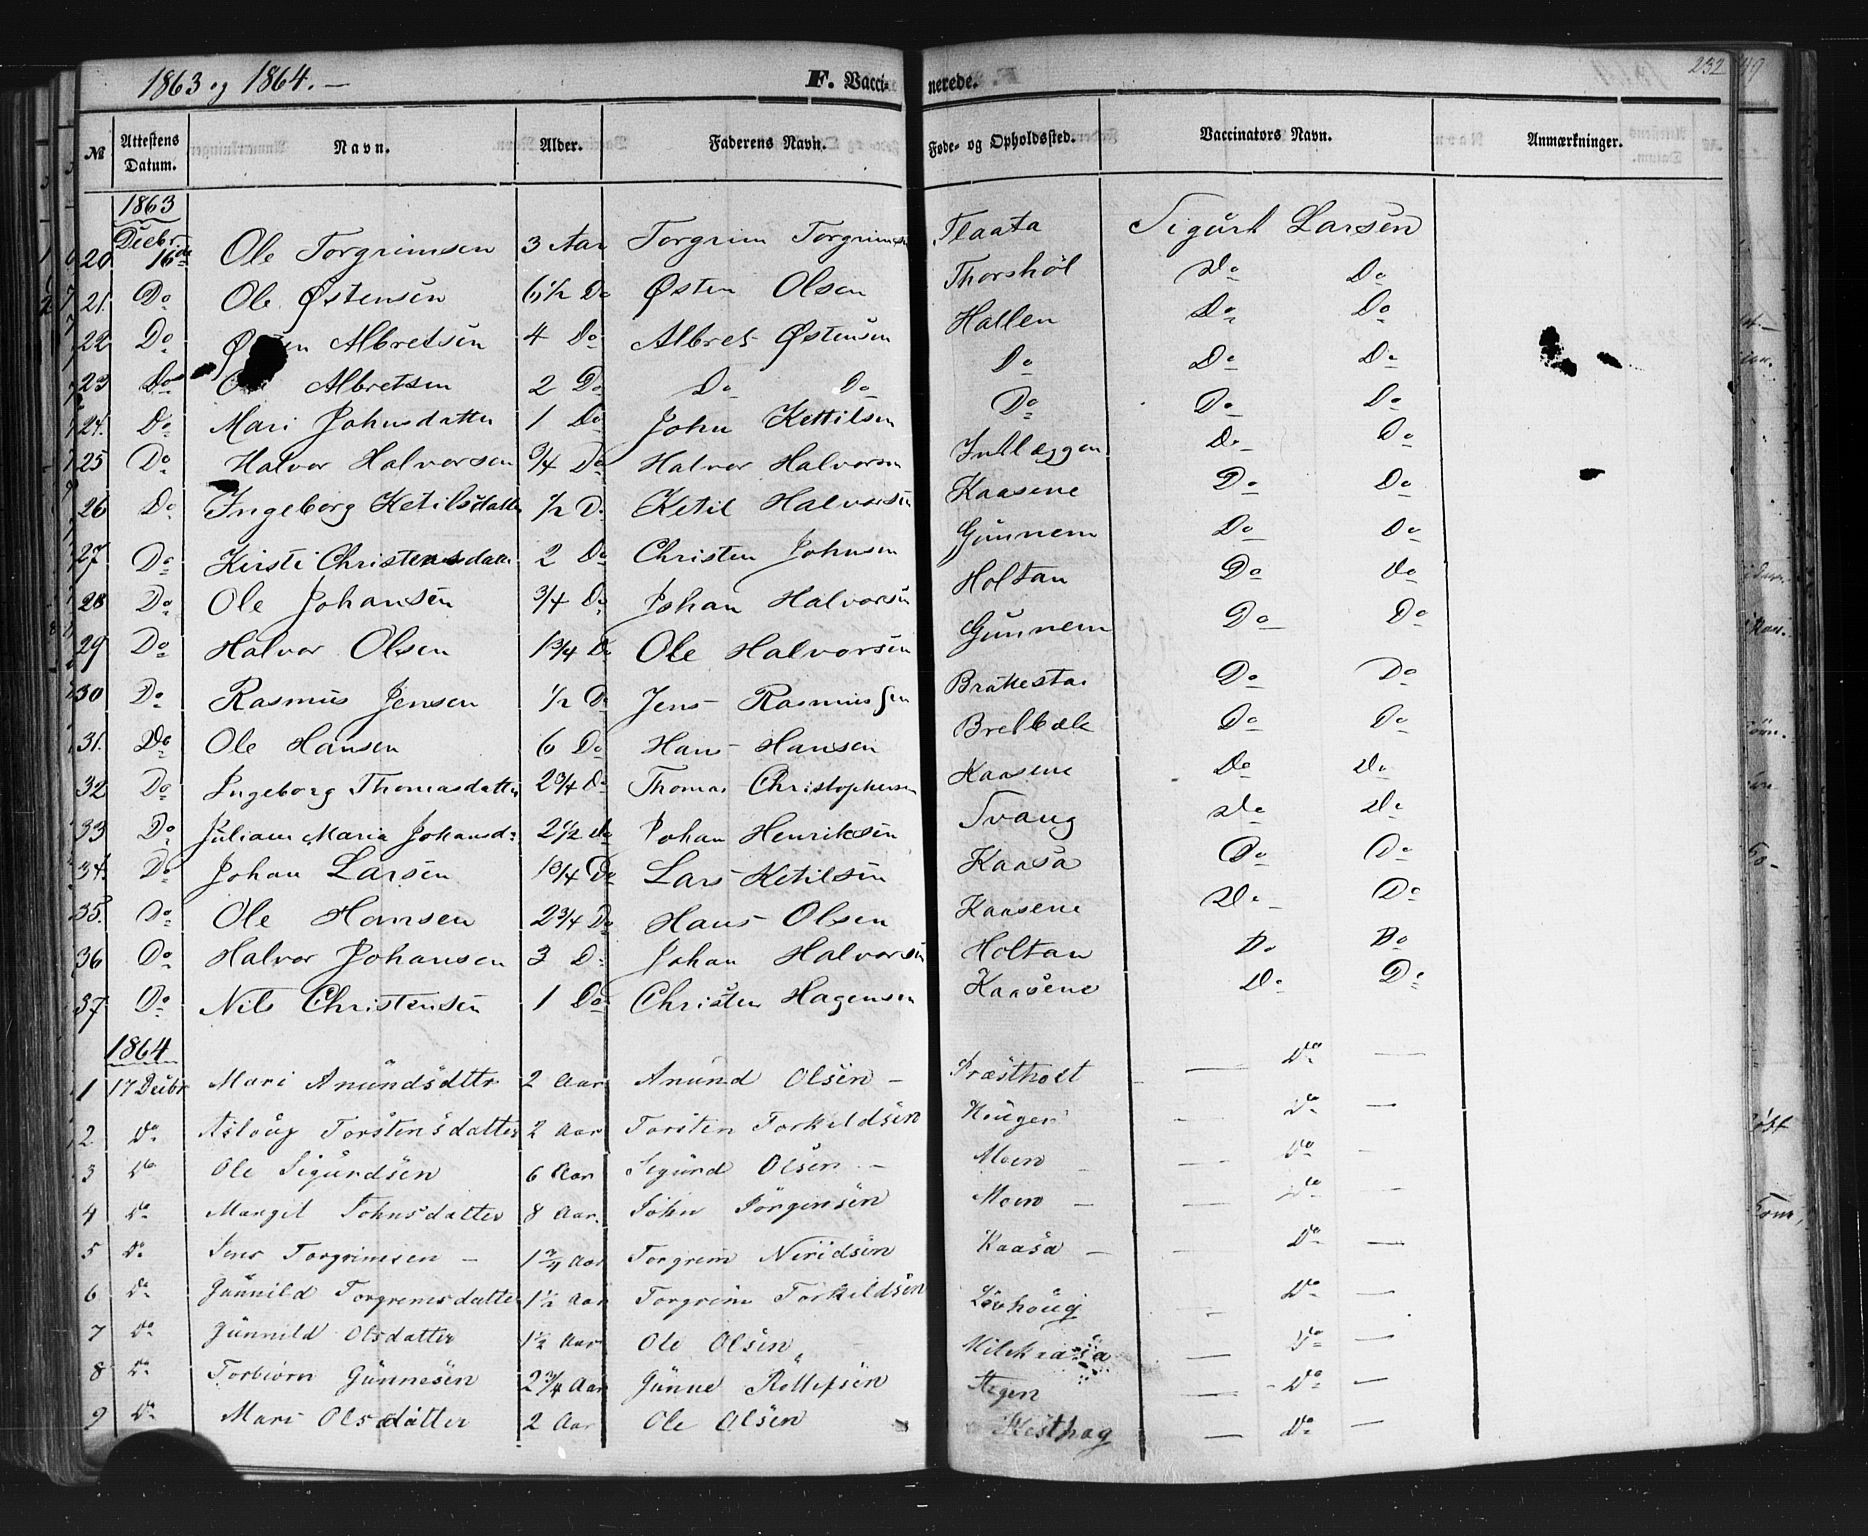 1863 og 1864. —
F. Vaccinerede.
232
№ Attestens Datum. Navn. Alder. Faderens Navn. Føde- og Opholdssted. Vaccinators Navn. Anmærkninger.
1863
20 Decbr. 16de Ole Torgrimsen 3 Aar Torgrim Torgrimsen Flaata Sigurt Larsen
21. Do Ole Østensen 6½ Do Østen Olsen Thorshøl Do Do
22 Do Albretsen 4 Do Albret Østensen Hallen Do Do
23 Do Albretsen 2 Do Do Do Do Do Do
24. Do Mari Johnsdatter 1 Do John Kettilsen Do Do Do
25 Do Halvor Halvorsen ¾ Do Halvor Halvorsen Do Do
26 Do Ingeborg Ketilsdatter ½ Do Ketil Halvorsen Kaasene Do Do
27 Do Kirsti Christensdatter 2 Do Christen Johnsen Gunnem Do Do
28 Do Ole Johansen ¾ Do Johan Halvorsen Holtan Do Do
29 Do Halvor Olsen 1¾ Do Ole Halvorsen Gunnem Do Do
30 Do Rasmus Jensen ½ Do Jens Rasmussen Do Do
31. Do Ole Hansen 6 Do Hans Hansen Do Do
32 Do Ingeborg Thomasdatter 2¾ Do Thomas Christophersen Kaasene Do Do
33 Do Juliane Maria Johansd: 2½ Do Johan Henriksen Tvang Do Do
34. Do Johan Larsen 1¾ Do Lars Ketilsen Kaasa Do Do
35. Do Ole Hansen 2¾ Do Hans Olsen Kaasene Do Do
36 Do Halvor Johansen 3 Do Johan Halvorsen Holtan Do Do
37 Do Nils Christensen 1 Do Christen Hagensen Kaasene Do Do
1864
1 17 Decbr Mari Anundsdttr 2 Aar Anund Olsen — Præstholt — Do —
2 Do Aslaug Torstensdatter 2 Aar Torsten Torkildsen Haugen — Do —
3 Do Ole Sigurdsen 6 Aar Sigurd Olsen — Moen — Do —
4 Do Margit Johnsdatter 8 Aar. John Jörgensen Moen — Do —
5 Do Jens Torgrimsen — 1¾ Aar Torgrim Neridsen Kaasa — Do —
6 Do Gunnild Torgrimsdatter 1½ Aar Torgrim Torkildsen Lövhoug — Do —
7 Do Gunnild Olsdatter 1½ Aar Ole Olsen — Do —
8 Do Torbiörn Gunnesen 2¾ Aar Gunne Rollefsen Stegen — Do —
9 Do Mari Olsdatter 2 Aar Ole Olsen Hesthag — Do —